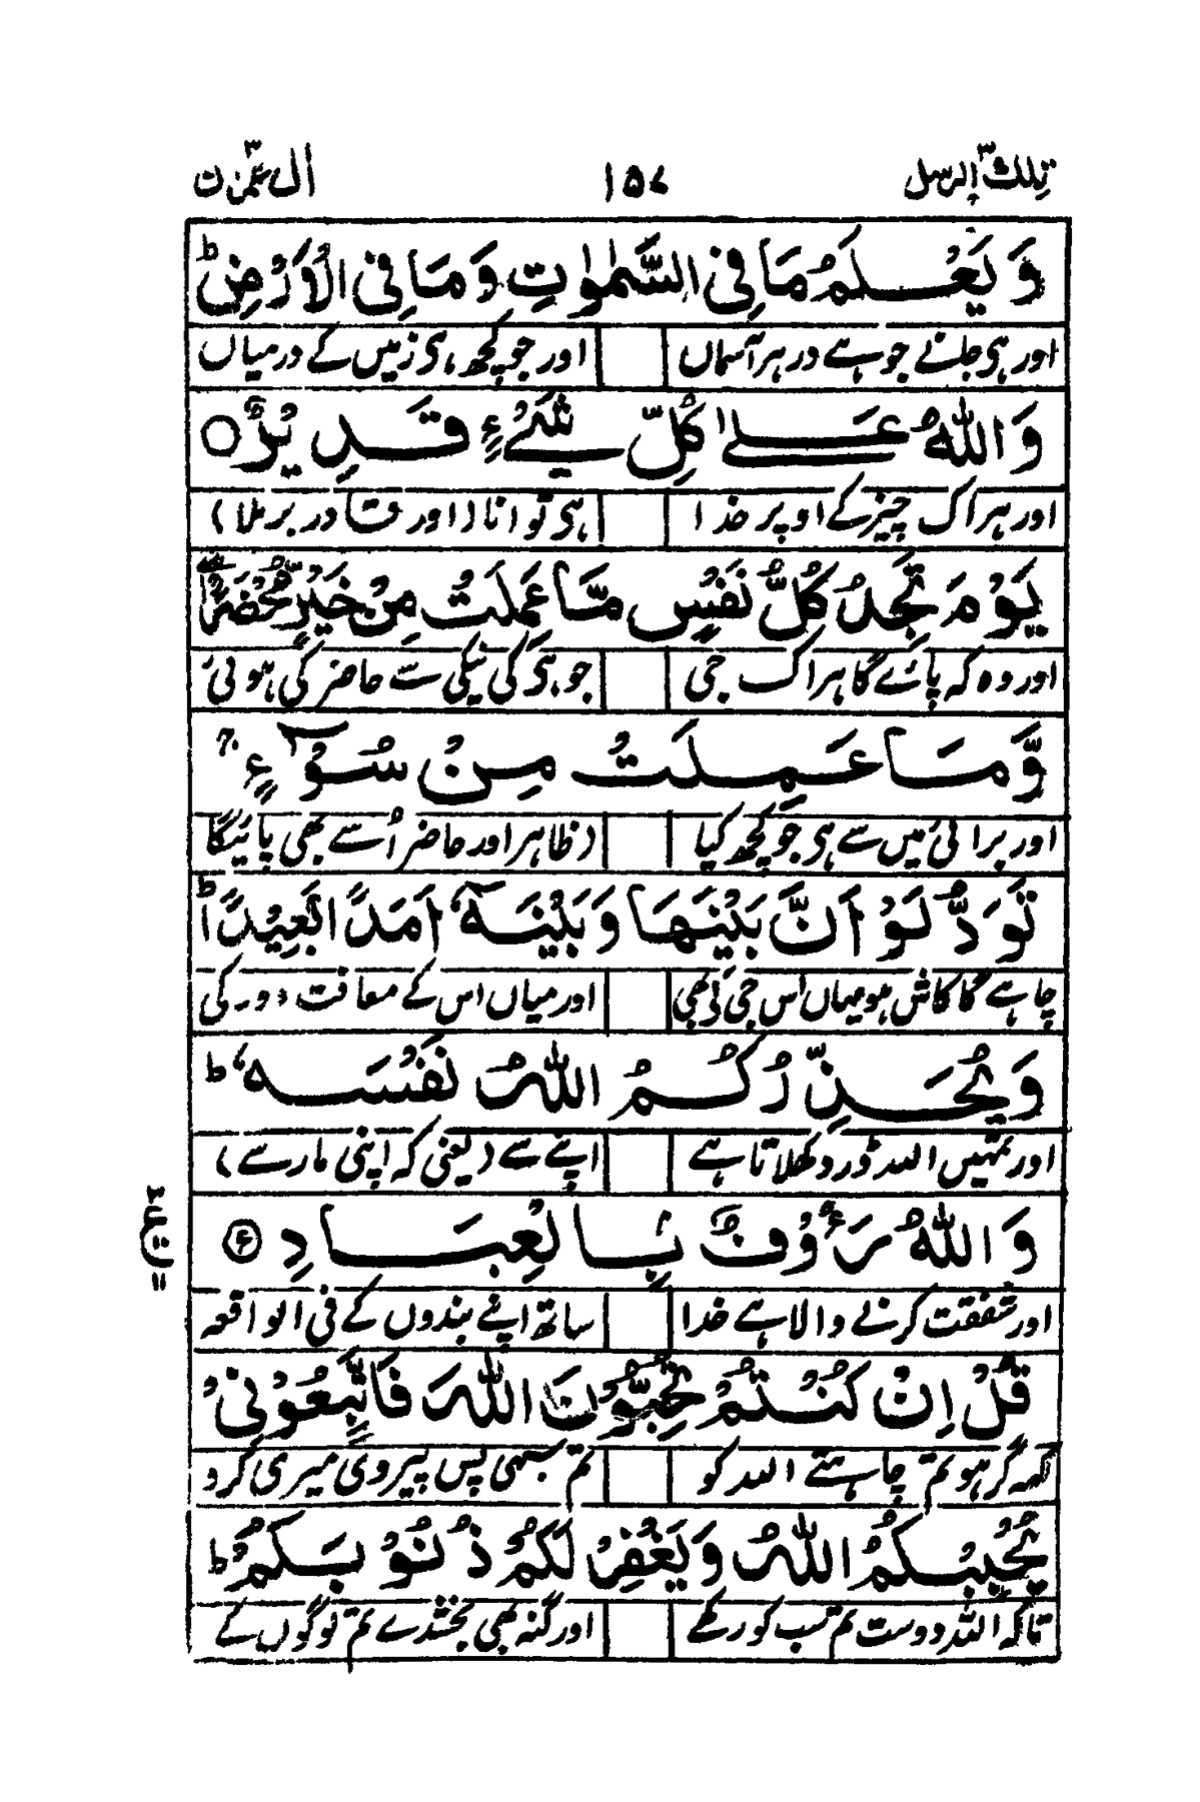 تلك الرسل ٣ ١٥٧ ال عمرٰن ٣
وَ يَعْلَمُ مَا فِی السَّمٰوٰتِ وَ مَا فِی الْاَرْضِ ط
اور ہی جانے جو ہے در ہر آسماں اور جو کچھ ہی زمیں کے درمیاں
وَاللّٰهُ عَلٰى كُلِّ شَیْءٍ قَدِیْرٌ ○
اور ہر اک چیز کے اوپر خدا ہی توانا (اور قادر برملا)
یَوْمَ تَجِدُ كُلُّ نَفْسٍ مَّا عَمِلَتْ مِنْ خَیْرٍ مُّحْضَرًا
اور وہ کہ پائے گا ہر اک جی جو ہی کی نیکی سے حاضر کی ہوئی
وَّمَا عَمِلَتْ مِنْ سُوْٓءٍ
اور برائی میں سے ہی جو کچھ کیا (ظاہر اور حاضر اُسے بھی پائیگا
تَوَدُّ لَوْ اَنَّ بَیْنَهَا وَ بَیْنَهٗۤ اَمَدًۢا بَعِیْدًا ط
چاہے گا کاش ہو میاں اس جی کی بھی اور میاں اس کے مسافت دور کی
وَ یُحَذِّرُكُمُ اللّٰهُ نَفْسَهٗ ط
اور تمہیں اللہ ڈر دکھلاتا ہے اپنے سے (یعنی کہ اپنی مار سے)
وَاللّٰهُ رَءُوْفٌۢ بِالْعِبَادِ
اور شفقت کرنے والا ہے خدا ساتھ اپنے بندوں کے فی الواقعہ
قُلْ اِنْ كُنْتُمْ تُحِبُّوْنَ اللّٰهَ فَاتَّبِعُوْنِیْ
کہہ گر ہو تم چاہتے اللہ کو تم سبھی پس پیروی میری کرو
یُحْبِبْكُمُ اللّٰهُ وَ یَغْفِرْ لَكُمْ ذُنُوْبَكُمْ ط
تاکہ اللہ دوست تم سب کو رکھے اور گنہ بھی بخشدے تم لوگوں کے